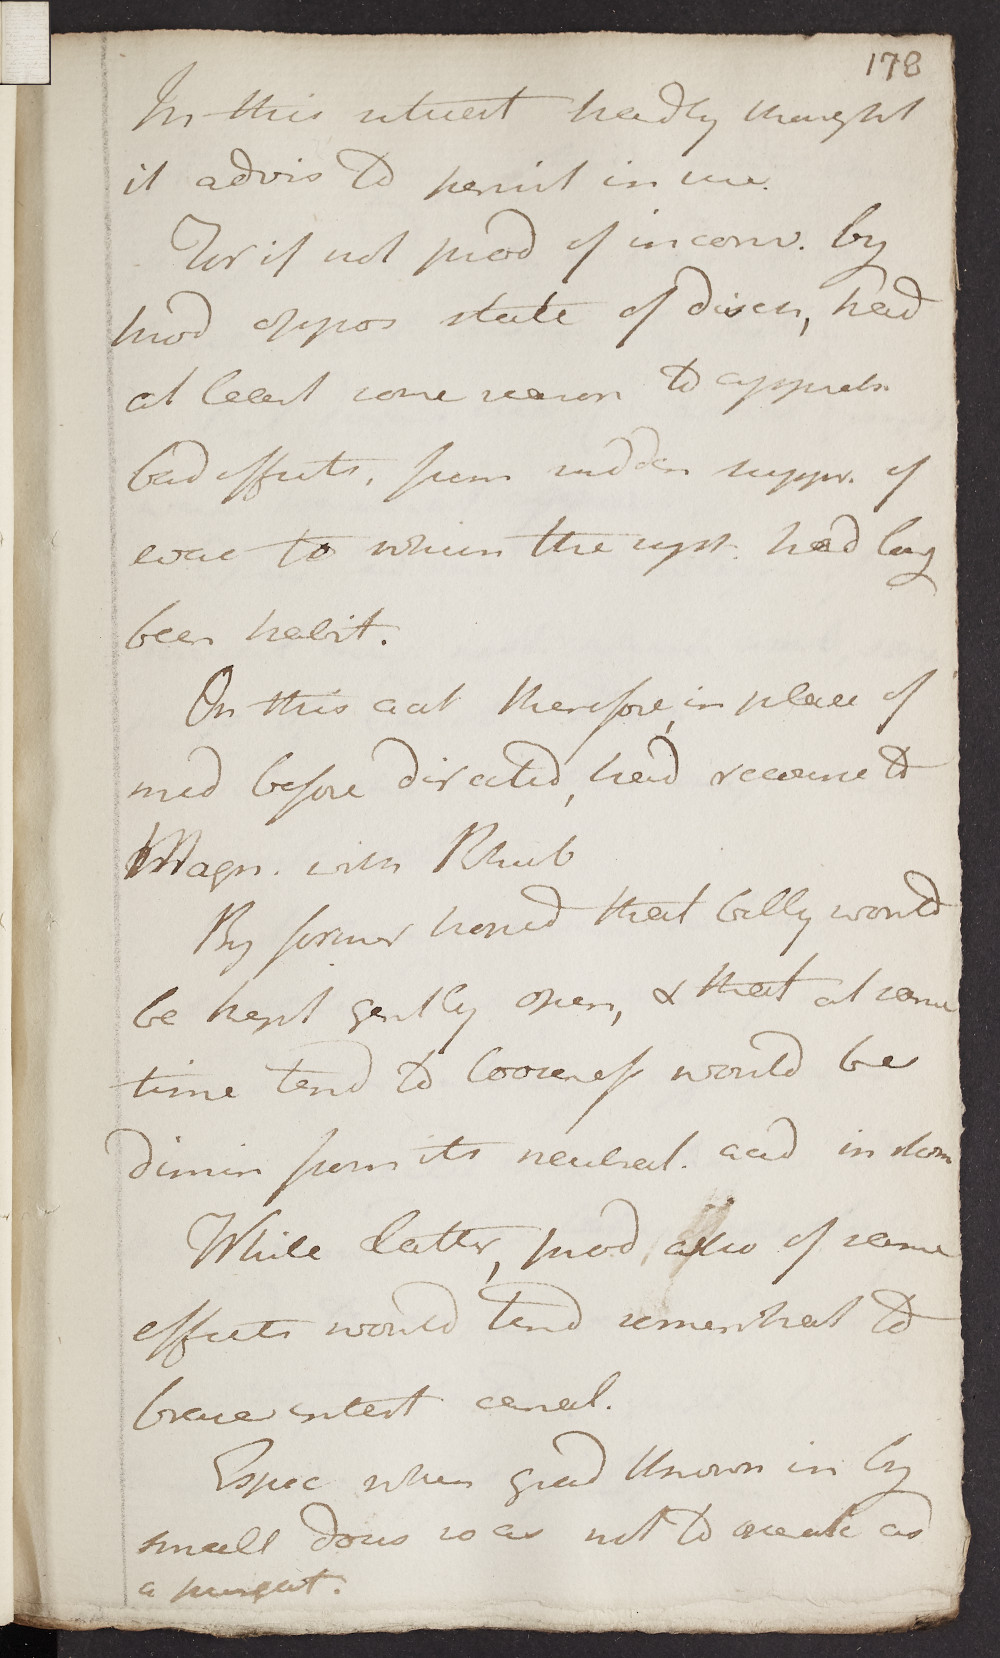 178
In this situat hardly thought
it advis to persist in use.
For if not prod of inconv. by
prod oppos state of disch, had
at least some reason to appreh
bad effects, from sudden suppr. of
evac to which the syst. had long
been habit.
On this acct therefore, in place of
med before directed, had recourse to
Magn. with Rhub
By former hoped that belly would
be kept gently open, & that at same
time tend to looseness would be
dimin from its neutral. acid in stom
While latter, prod also of same
effects would tend somewhat to
brace intest canal.
Espec when grad thrown in by
small doses so as not to operate as
a purgat.